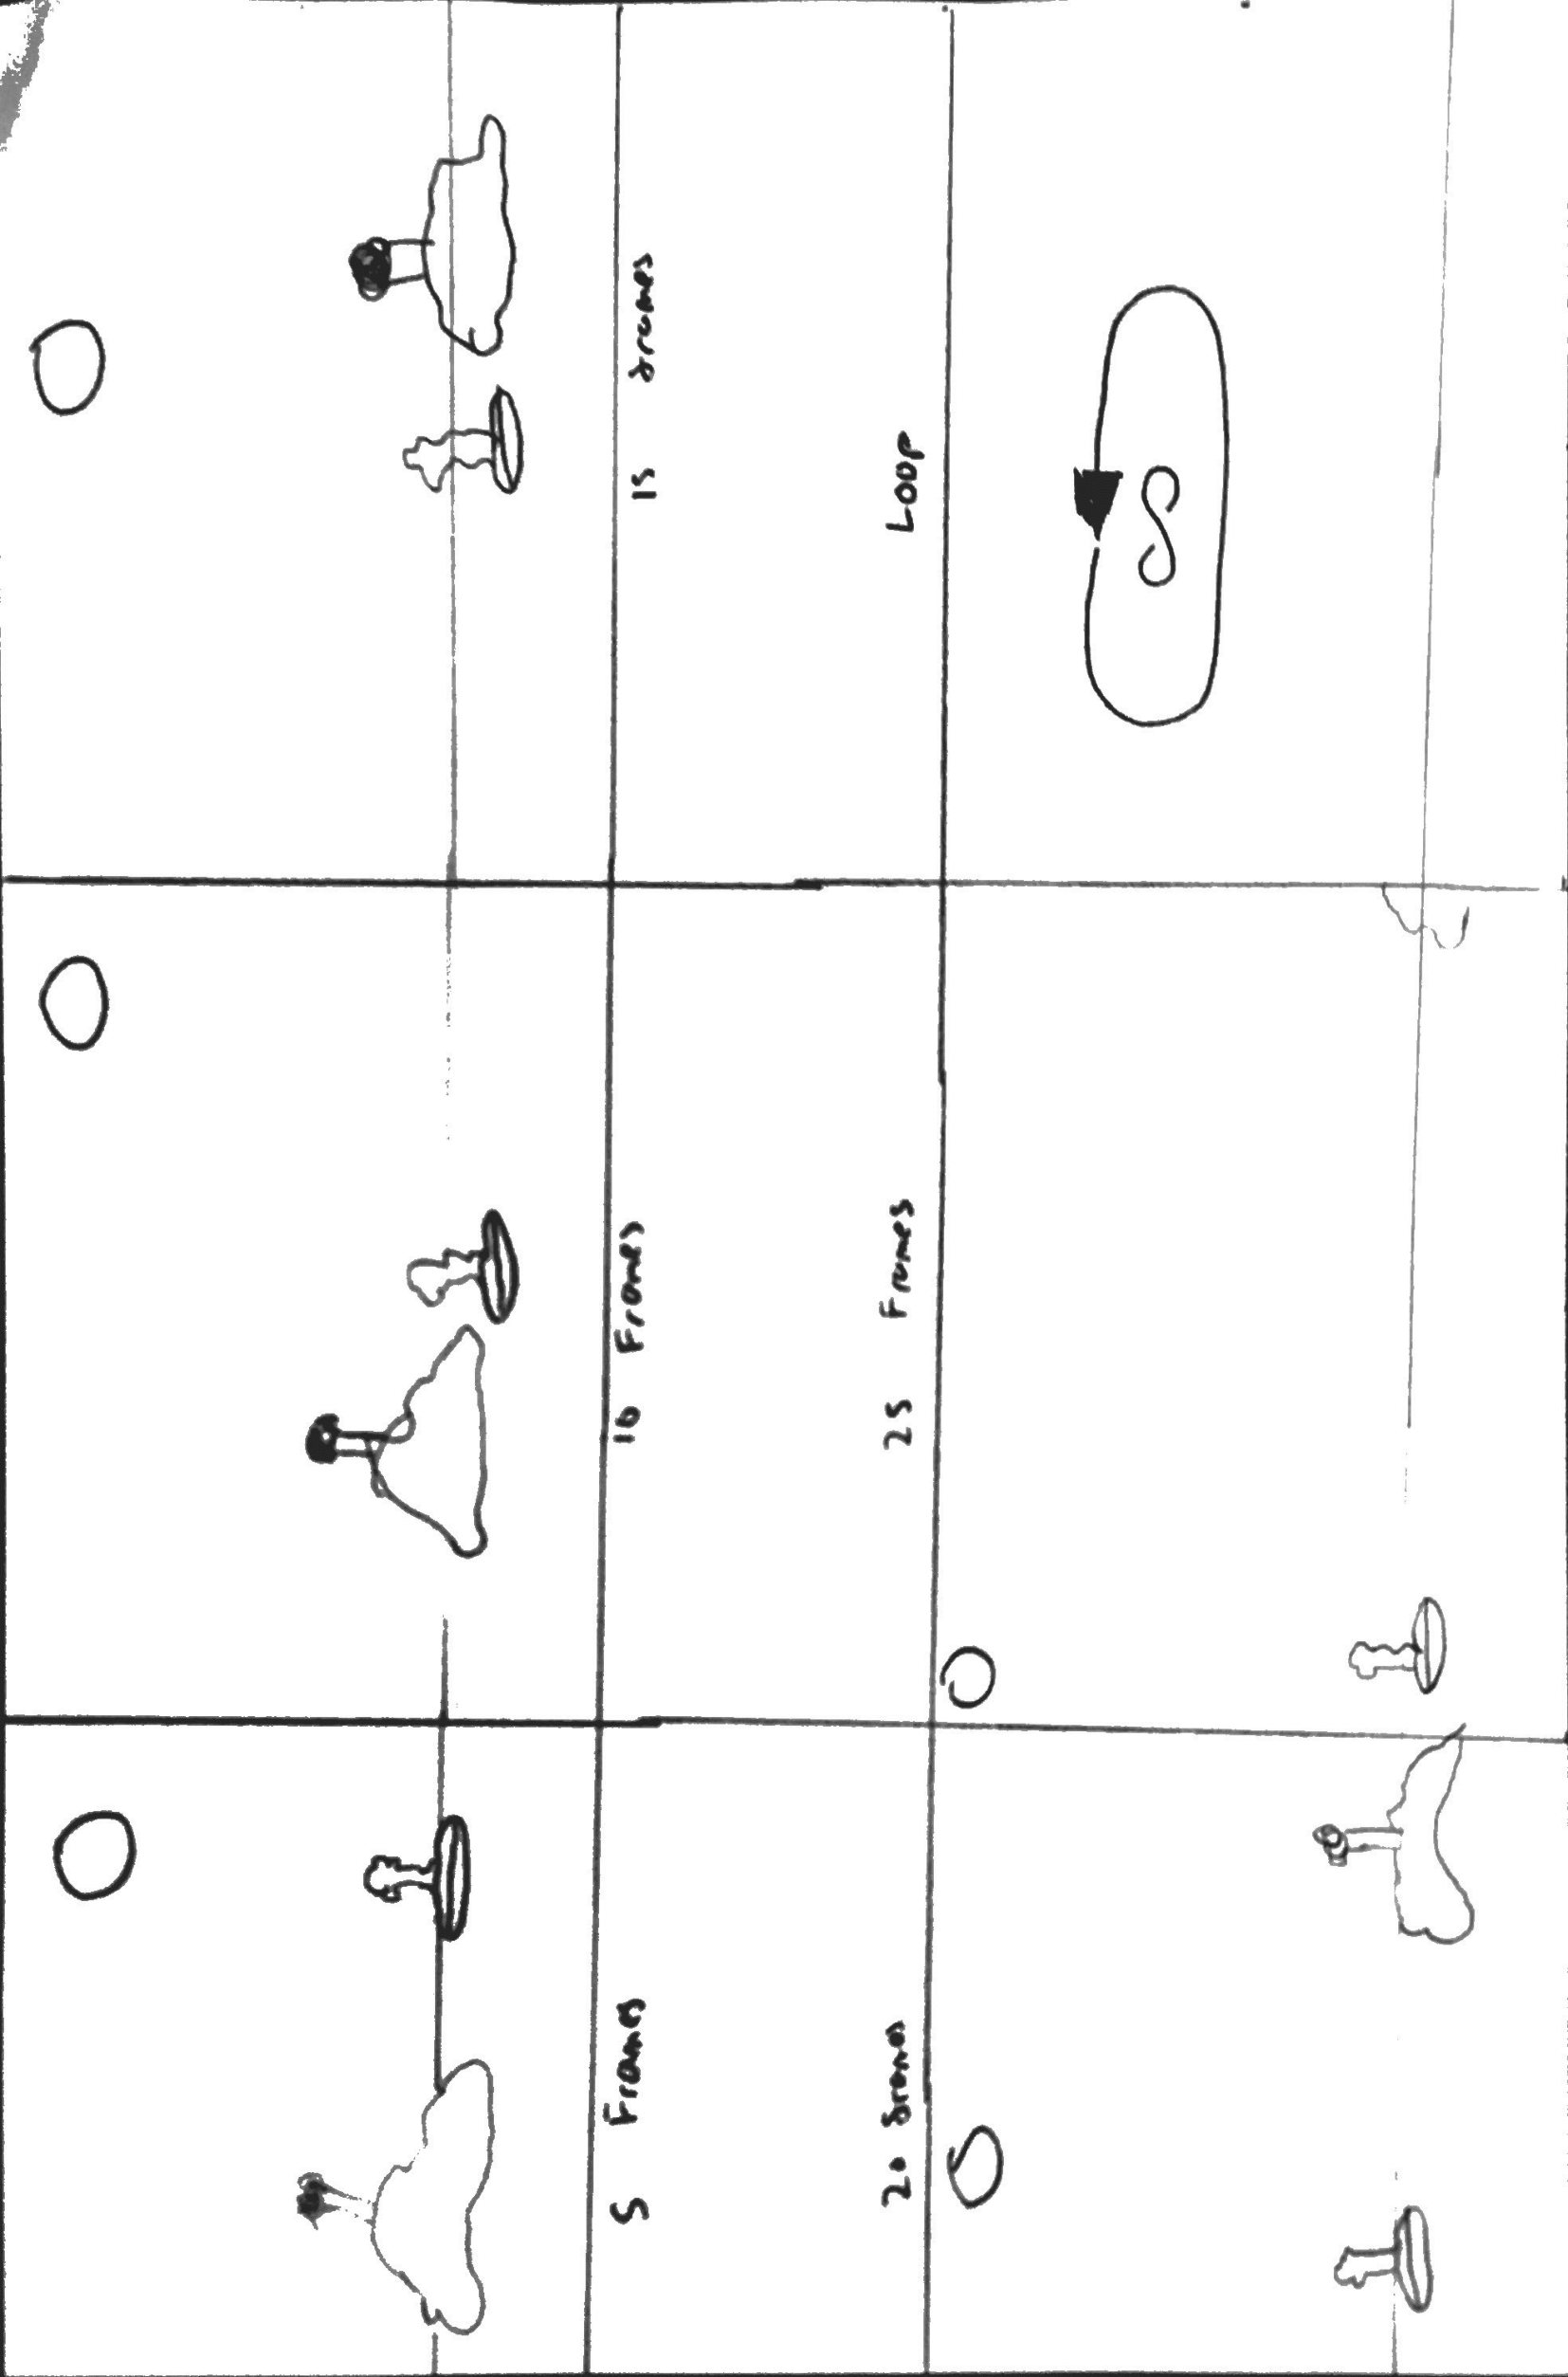 5 Frames
10 Frames
15 frames
20 frames
25 Frames
LOOP